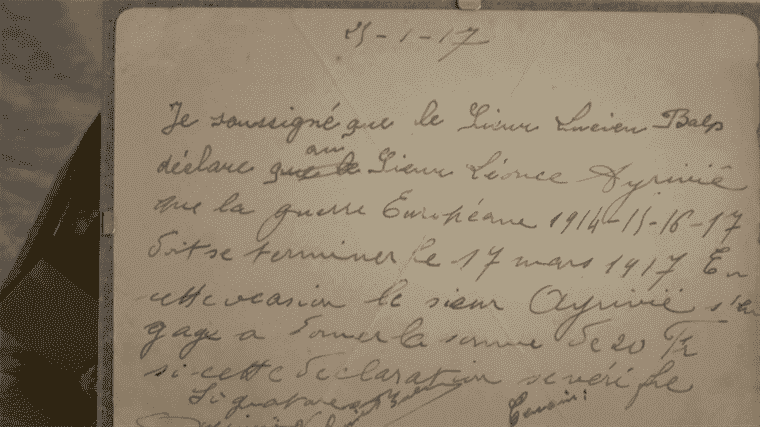 25-1-17
Je soussigné que le Sieur Lucien Balp
déclare que le au Sieur Léonce Ayrivié
que la guerre Européane 1914-15-16-17
doit se terminer le 17 mars 1917 En
cette ocasion le sieur Ayrivié s'en
gage a donner la somme de 20 Fr
si cette declaration se vérifie
Signatures
Temoin: